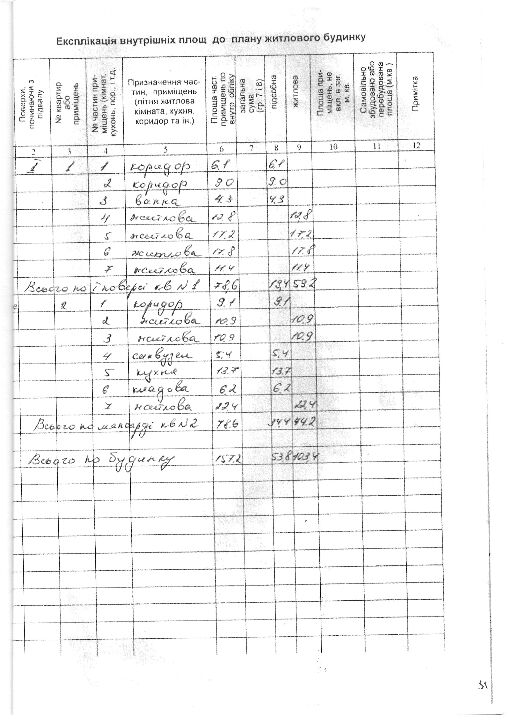 Експлікація внутрішніх площ до плану житлового будинку
Поверхи, починаючи з підвалу
№ квартир або приміщень
№ частин приміщень (кімнат, кухонь, кор. і т.д.
Призначення частин, приміщень (літня житлова кімната, кухня, коридор та ін.)
Площа част. приміщень по внутр. обліку
загальна сума (гр. 7 і 8)
підсобна
житлова
Площа приміщень, не вкл. в заг. м. кв.
Самовільно збудовано або перебудована площа (м.кв.)
Примітка
2 3 4 5 6 7 8 9 10 11 12
1 1 1 коридор 6,1 6,1
2 коридор 9.0 9.0
3 ванна 4,3 4,3
4 житлова 12,8 12,8
5 житлова 17,2 17,2
6 житлова 17.8 17.8
7 житлова 11.4 11.4
Всього по І поверсі кв N1 78,6 19,4 59.2
2 1 коридор 9,1 9,1
2 житлова 10,9 10,9
3 житлова 10,9 10,9
4 санвузел 5,4 5,4
5 кухня 13.7 13.7
6 кладова 6.2 6.2
7 житлова 22.4 22.4
Всього по мансарді кв N2 78.6 34.4 44.2
Всього по будинку 157.2 53.8 103.4